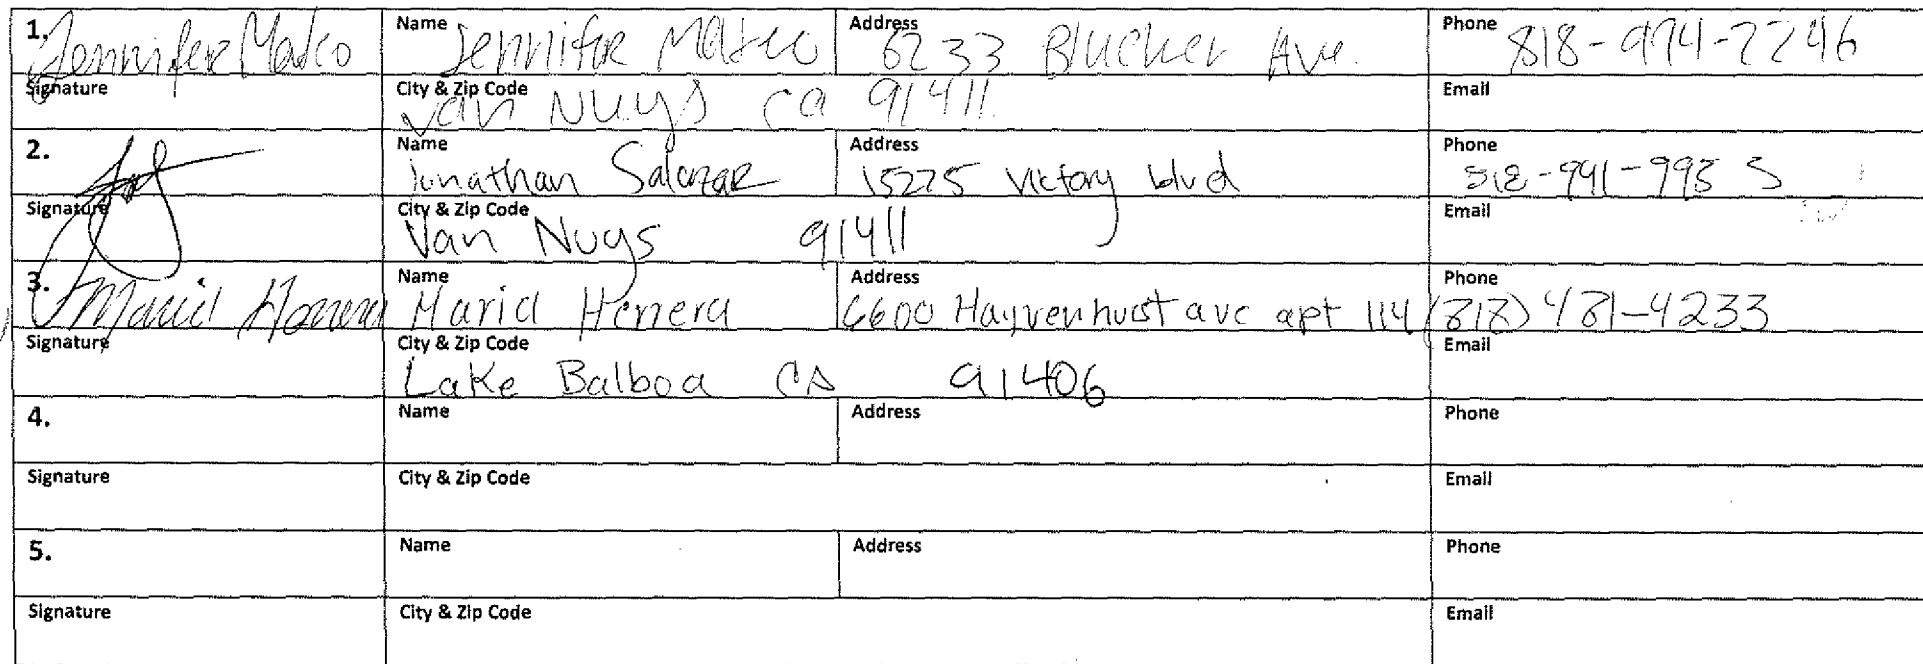 1. Jennifer Mateo Name Jennifer Mateo Address 6233 Blucher Ave. Phone 818-974-2246
Signature City & Zip Code Van Nuys ca 91411 Email
2. Name Jonathan Salazar Address 15225 Victory blvd Phone
Signature City & Zip Code Van Nuys 91411 Email
3. Maria Herrera Name Maria Herrera Address 6600 Hayvenhurst ave apt 114 Phone (818) 481-4233
Signature City & Zip Code Lake Balboa CA 91406 Email
4. Name Address Phone
Signature City & Zip Code Email
5. Name Address Phone
Signature City & Zip Code Email